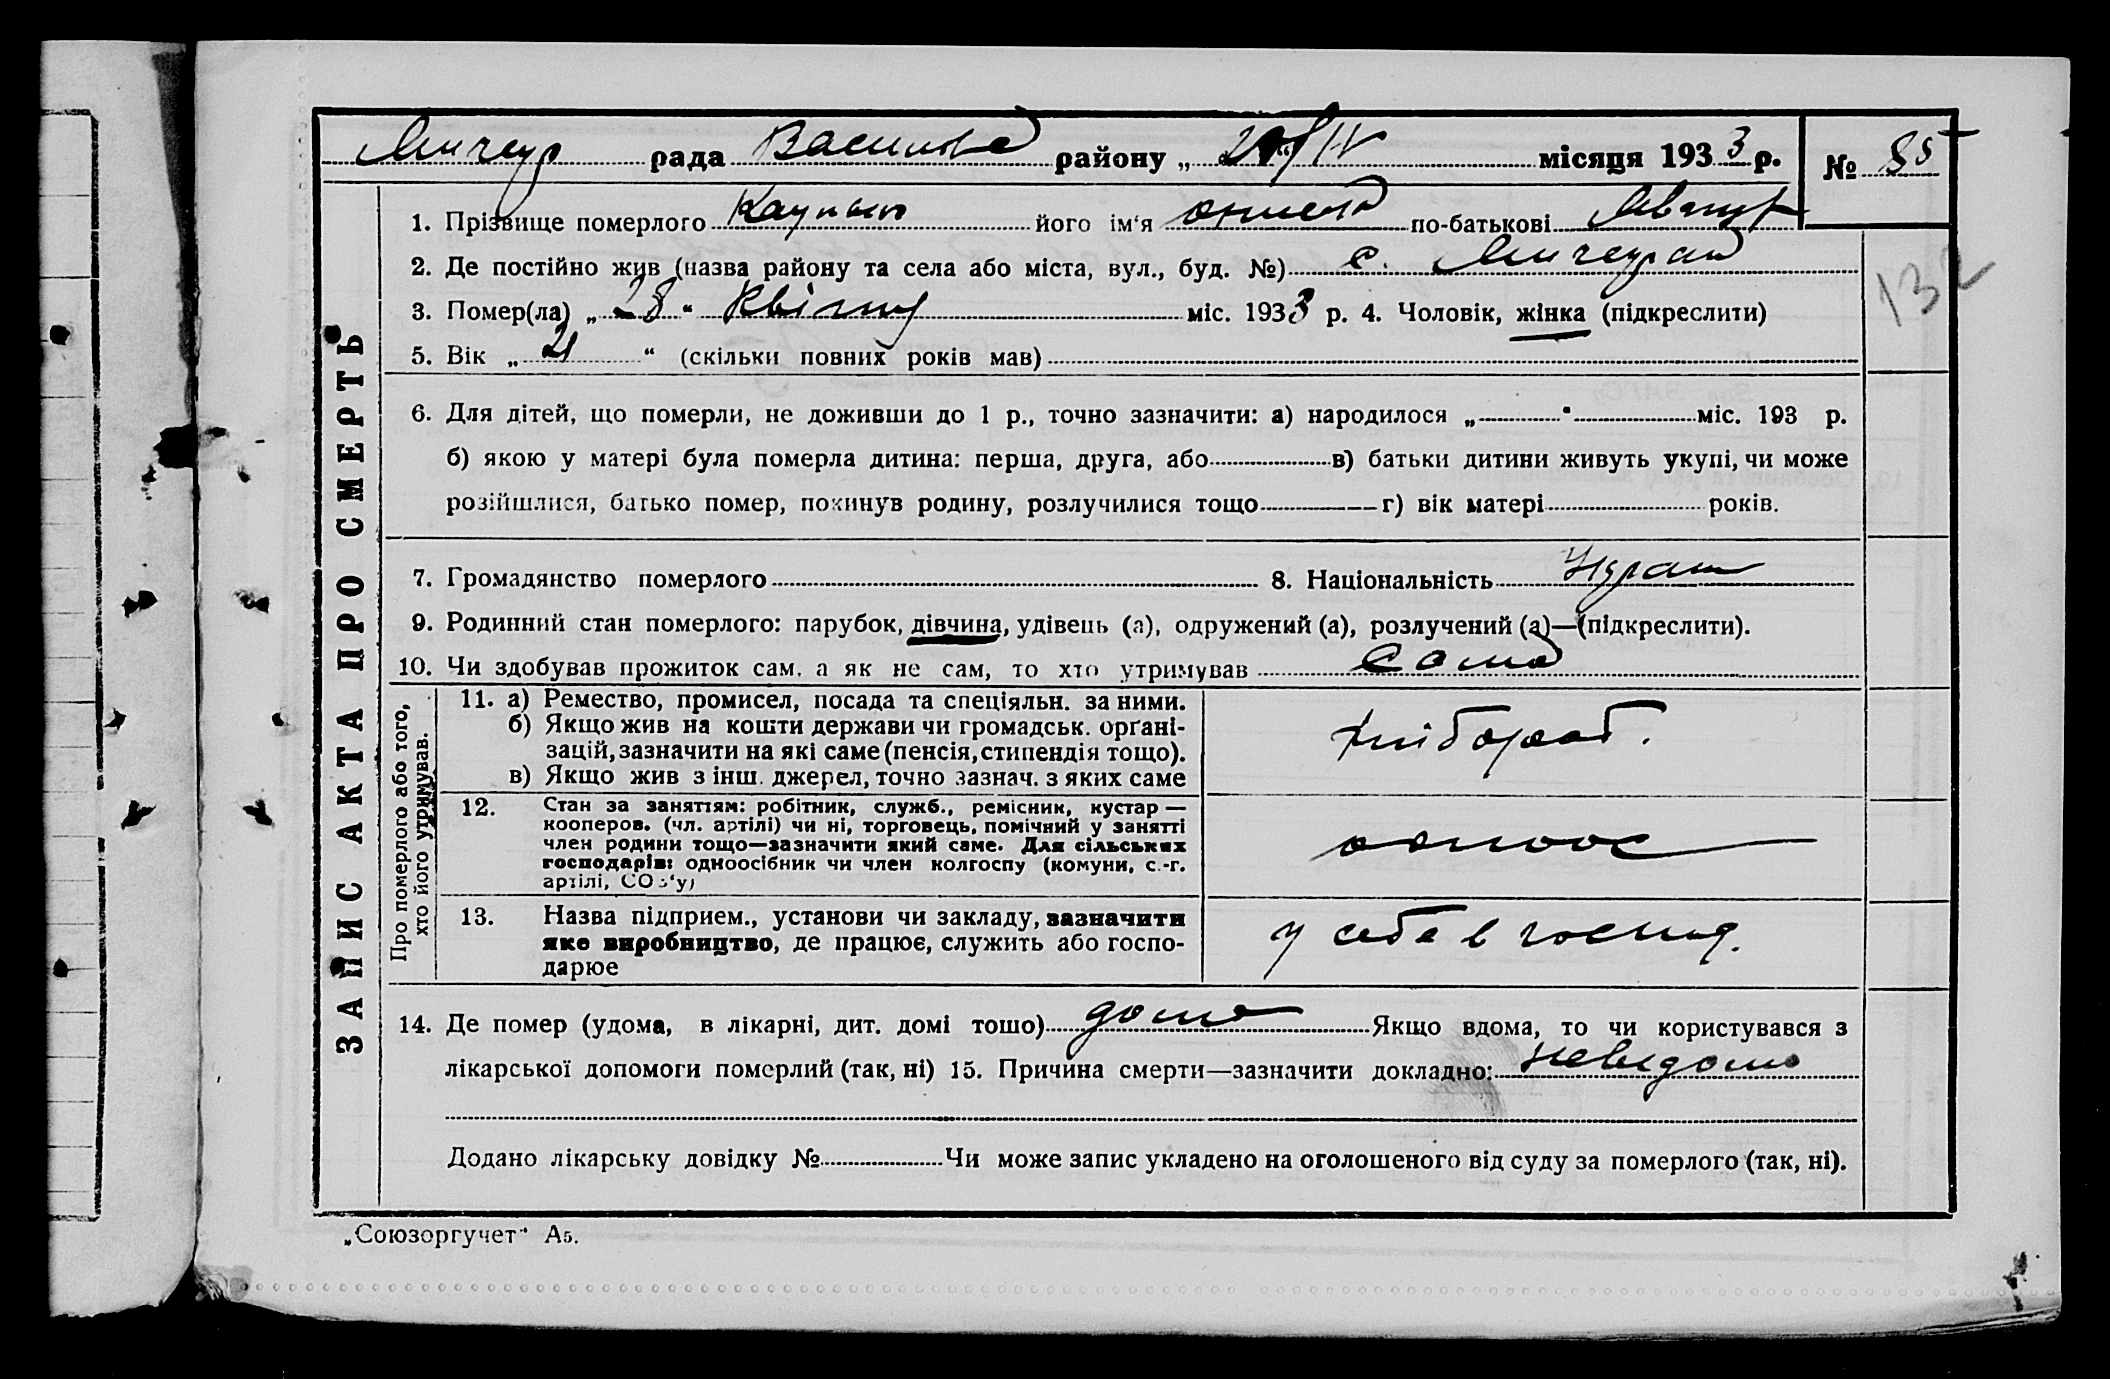 рада Васильків району „ 29/IV місяця 1933 р. № 85
132
1. Прізвище померлого його ім'я по-батькові
2. Де постійно жив (назва району та села або міста, вул., буд. №) с.
3. Помер(ла) „ 28 “ квітня міс. 1933 р. 4. Чоловік, жінка (підкреслити)
5. Вік „ 21 “ (скільки повних років мав)
6. Для дітей, що померли, не доживши до 1 р., точно зазначити: а) народилося „ “ міс. 193 р.
б) якою у матері була померла дитина: перша, друга, або в) батьки дитини живуть укупі, чи може
розійшлися, батько помер, покинув родину, розлучилися тощо г) вік матері років.
7. Громадянство померлого 8. Національність Украин
9. Родинний стан померлого: парубок, дівчина, удівець (а), одружений (а), розлучений (а)—(підкреслити).
10. Чи здобував прожиток сам, а як не сам, то хто утримував сама
ЗАПИС АКТА ПРО СМЕРТЬ
Про померлого або того,
хто його утримував.
11. а) Ремество, промисел, посада та спеціяльн. за ними.
б) Якщо жив на кошти держави чи громадськ. орґані-
зацій, зазначити на які саме (пенсія, стипендія тощо).
в) Якщо жив з інш. джерел, точно зазнач. з яких саме
хлібороб.
12. Стан за заняттям: робітник, служб., ремісник, кустар —
кооперов. (чл. артілі) чи ні, торговець, помічний у занятті
член родини тощо—зазначити який саме. Для сільських
господарів: одноосібник чи член колгоспу (комуни, с.-г.
артілі, СОЗ'у)
одноос
13. Назва підприєм., установи чи закладу, зазначити
яке виробництво, де працює, служить або госпо-
дарює
у себе в господ.
14. Де помер (удома, в лікарні, дит. домі тощо) дома Якщо вдома, то чи користувався з
лікарської допомоги померлий (так, ні) 15. Причина смерти—зазначити докладно: невідомо
Додано лікарську довідку № Чи може запис укладено на оголошеного від суду за померлого (так, ні).
„Союзоргучет“ А5.